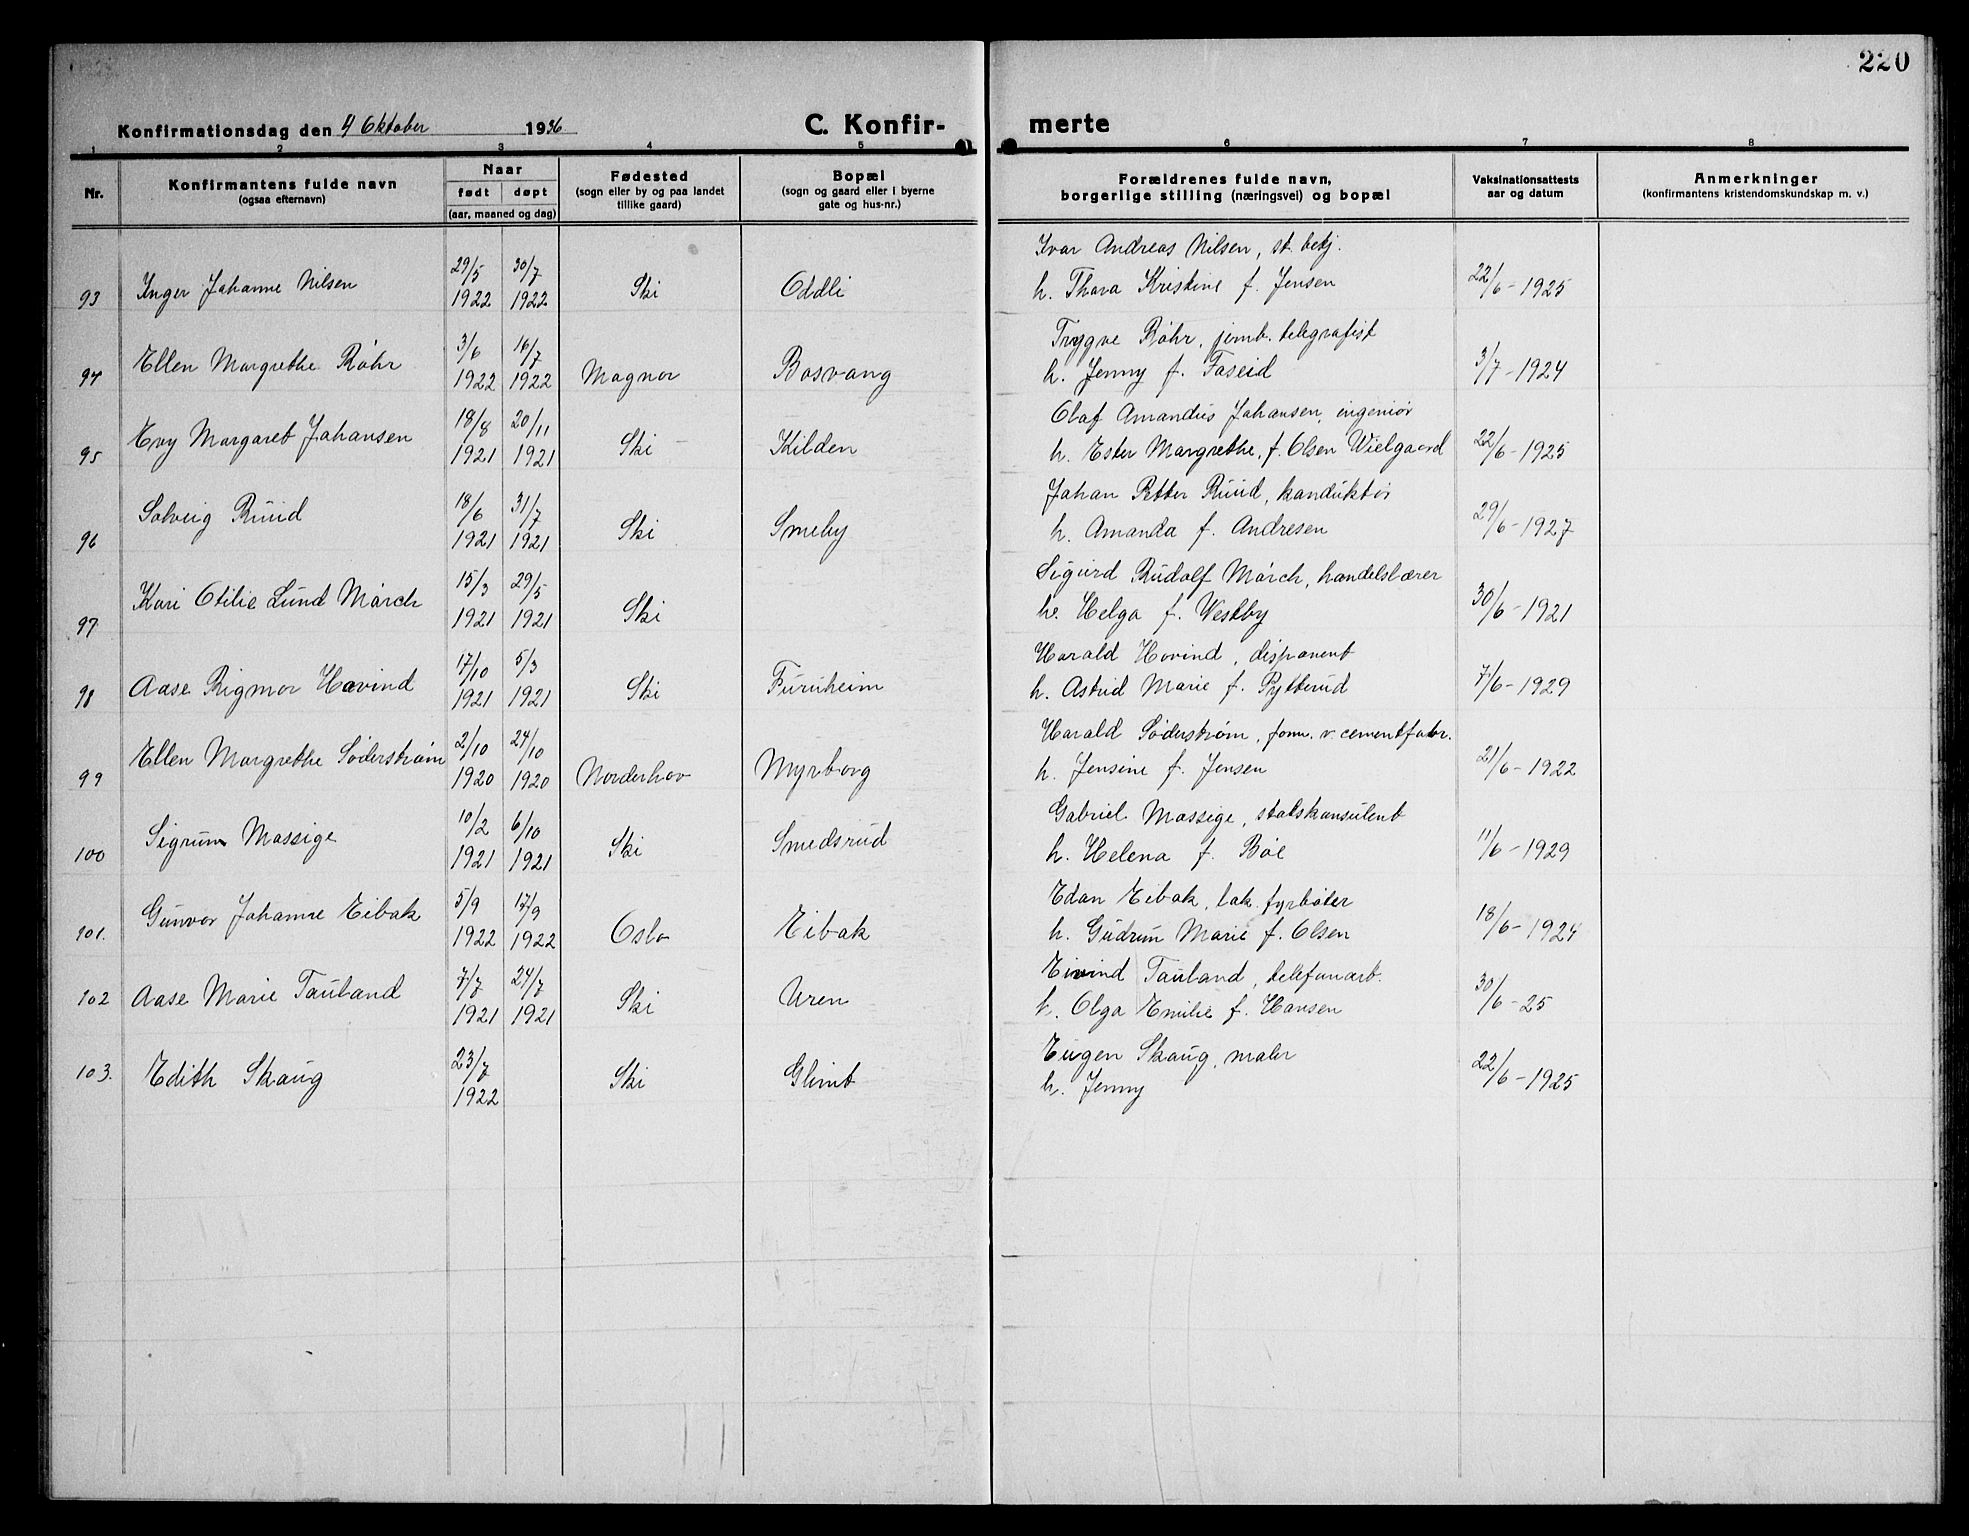 220
Konfirmationsdag den 4 Oktober 1936 C. Konfir- merte
1 2 3 4 5 6 7 8
Nr.
Konfirmantens fulde navn
(ogsaa efternavn)
Naar
født døpt
(aar, maaned og dag)
Fødested
(sogn eller by og paa landet
tillike gaard)
Bopæl
(sogn og gaard eller i byerne
gate og hus-nr.)
Forældrenes fulde navn,
borgerlige stilling (næringsvei) og bopæl
Vaksinationsattests
aar og datum
Anmerkninger
(konfirmantens kristendomskundskap m. v.)
Ivar Andreas Nilsen, st. betj.
93 Inger Johanne Nilsen 29/5 1922 30/7 1922 Ski Oddli h. Thora Kristine f. Jensen 22/6-1925
Trygve Röhr, jernb. telegrafist
94 Ellen Margrethe Röhr 3/6 1922 16/7 1922 Magnor Rosvang h. Jenny f. Faseid 3/7-1924
Olaf Amandus Johansen, ingeniør
95 Evy Margaret Johansen 18/8 1921 20/11 1921 Ski Kilden h. Ester Margrethe, f. Olsen Wielgaard 22/6-1925
Johan Petter Ruud, konduktør
96 Solveig Ruud 18/6 1921 31/7 1921 Ski Smeby h. Amanda f. Andresen 29/6-1927
Sigurd Rudolf Mörch, handelslærer
97 Kari Otilie Lund Mörch 15/3 1921 29/5 1921 Ski h. Helga f. Westby 30/6-1921
Harald Hovind, disponent
98 Aase Rigmor Hovind 17/10 1921 5/3 1921 Ski Furuheim h. Astrid Marie f. Rytterud 7/6-1929
Harald Söderström, form. v. cementfabr.
99 Ellen Margrethe Söderström 2/10 1920 24/10 1920 Norderhov Myrborg h. Jensine f. Jensen 21/6-1922
Gabriel Massige, statskonsulent
100 Sigrun Massige 10/2 1921 6/10 1921 Ski Smedsrud h. Helena f. Böe 11/6-1929
Edan Eibak, lok. fyrböter
101. Gunvor Johanne Eibak 5/9 1922 17/9 1922 Oslo Eibak h. Gudrun Marie f. Olsen 18/6-1924
Eivind Tauland, telefonarb.
102 Aase Marie Tauland 7/7 1921 24/7 1921 Ski Uren h. Olga Emilie f. Hansen 30/6-25
Eugen Skaug, maler
103. Edith Skaug 23/7 1922 Ski Glimt h. Jenny 22/6-1925